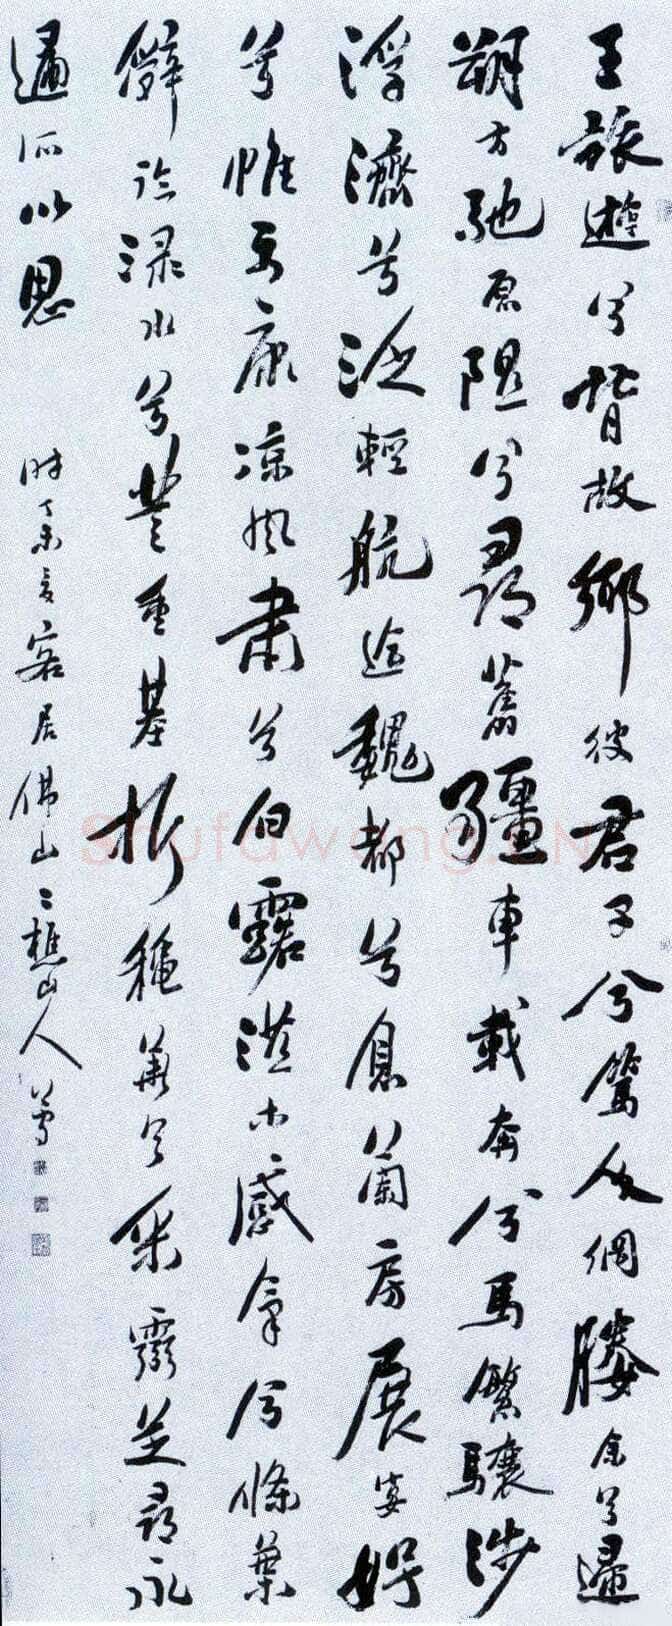 王旅遊兮背故鄉彼君子兮篤人綱媵余兮歸
朔方馳原隰兮尋舊疆車載奔兮馬繁驤涉
浮濟兮泛輕航迄魏都兮息蘭房展宴好
兮惟樂康涼風肅兮白露滋木感氣兮條葉
辭臨淥水兮登重基折穐華兮采靈芝尋永
所以思
時丁未夏客居佛山二樵山人簡
Shufawang.CN